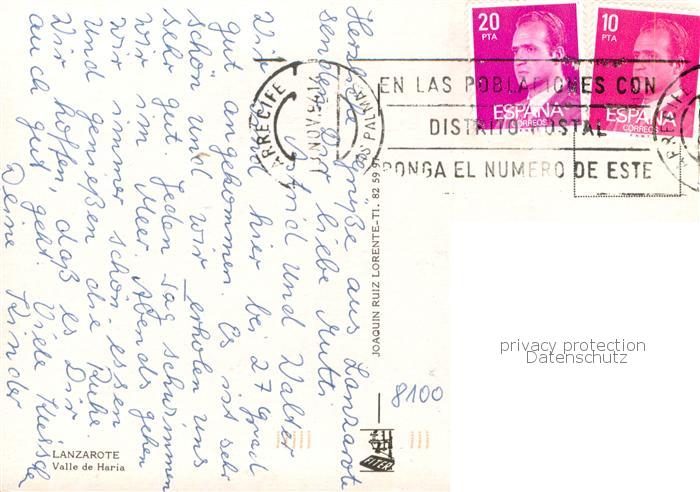 Herzliche Grüße aus Lanzarote
senden Dir liebe Mutti
Astrid und Walter
Wir sind hier bei 27 Grad
gut angekommen. Es ist sehr
schön und wir erholen uns
sehr gut. Jeden Tag schwimmen
wir im Meer. Abends gehen
wir immer schön essen
und genießen die Ruhe.
Wir hoffen, daß es Dir
auch gut geht. Viele Küsse
Deine Kinder
20
PTA
ESPAÑA
CORREOS
10
PTA
ESPAÑA
CORREOS
ARRECIFE
NOV.
PALMAS
EN LAS POBLACIONES CON
DISTRITO POSTAL
PONGA EL NUMERO DE ESTE
JOAQUIN RUIZ LORENTE-Tl. 82 59 97
privacy protection
Datenschutz
8100
LANZAROTE
Valle de Haria